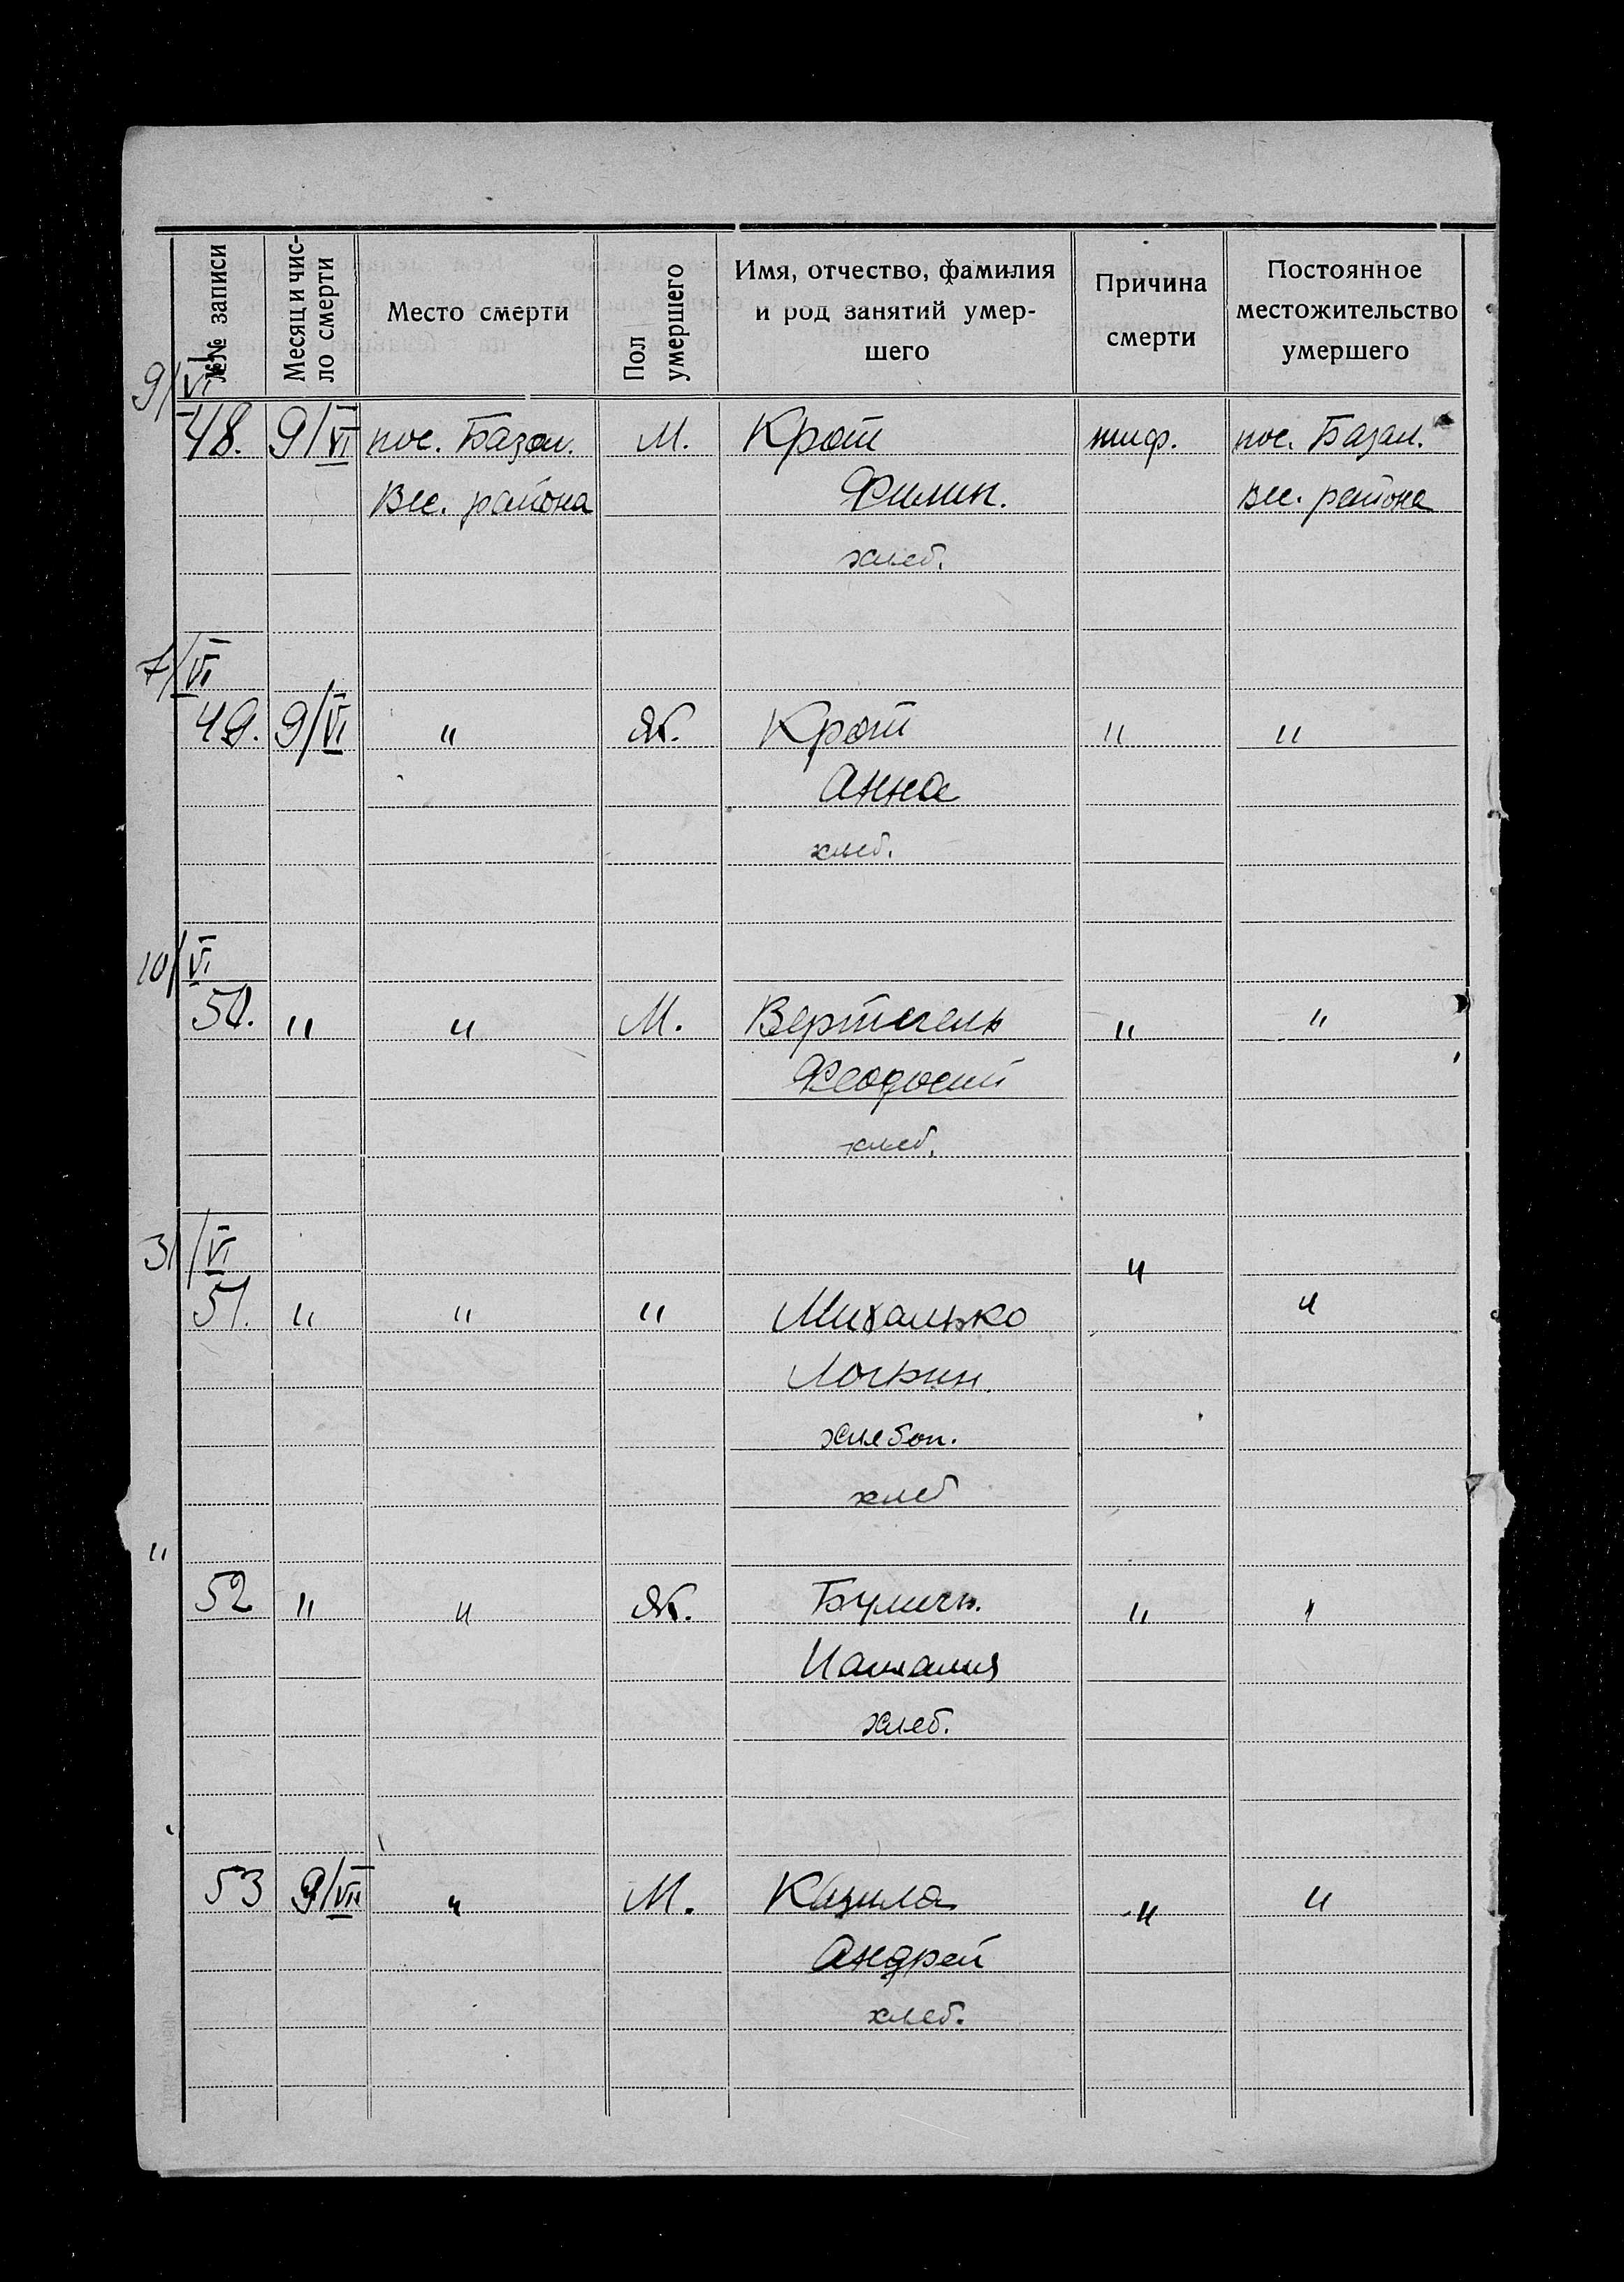 №№ записи
Месяц и чис-
ло смерти
Место смерти
Пол
умершего
Имя, отчество, фамилия
и род занятий умер-
шего
Причина
смерти
Постоянное
местожительство
умершего
9/VI
48. 9/VI пос. Базал. М. Крот тиф. пос. Базал.
Вес. района Филип. Вес. района
хлеб.
7/VI
49. 9/VI " Ж. Крот " "
Анна
хлеб.
10/VI
50. " " М. Вертигель " "
Феодосий
хлеб.
3/VI
"
51. " " " Михалько "
Логвин.
хлебоп.
хлеб
"
52 " " Ж. " "
Наталия
хлеб.
53 9/VII " М. " "
Андрей
хлеб.